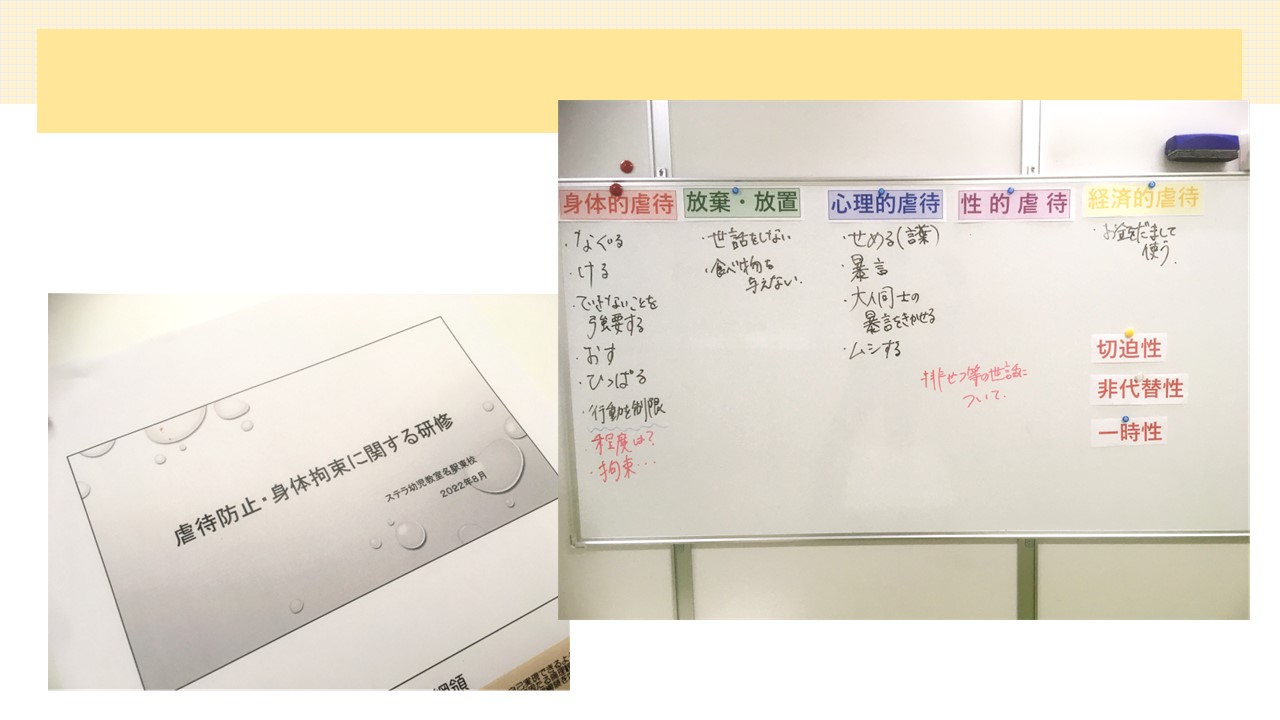 身体的虐待
・なぐる
・ける
・できないことを
強要する
・おす
・ひっぱる
・行動を制限
・程度は?
・拘束・・・
放棄・放置
・世話をしない
・食べ物を
与えない.
心理的虐待
・せめる(言葉)
・暴言
・大人同士の
暴言をきかせる
・ムシする
性的虐待
排せつ等の世話に
ついて.
経済的虐待
・お金をだまして
使う.
切迫性
非代替性
一時性
虐待防止・身体拘束に関する研修
ステラ幼児教室名駅東校
2022年8月
綱領